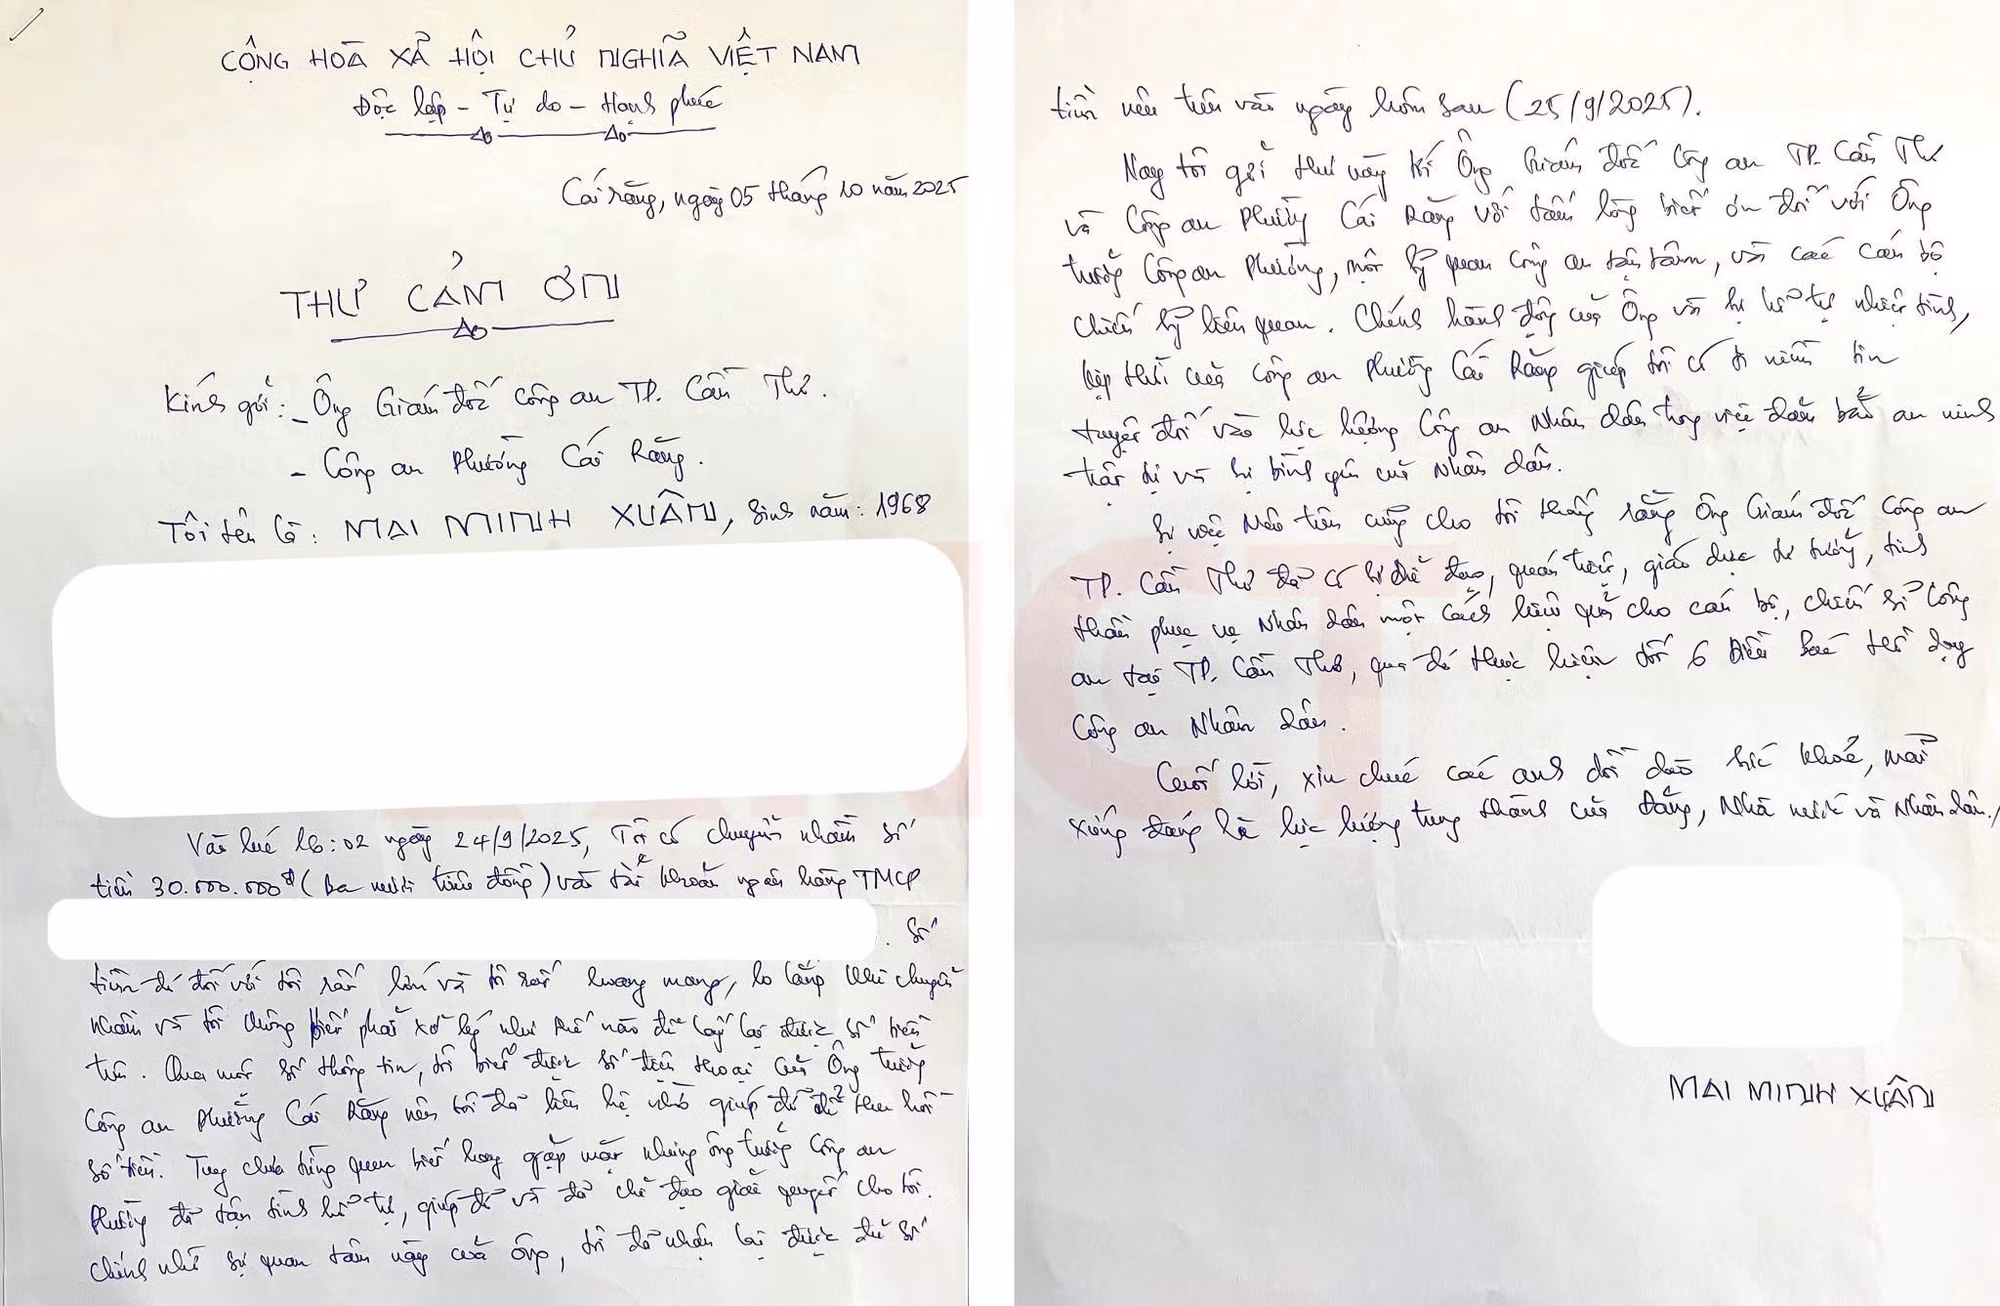 CỘNG HÒA XÃ HỘI CHỦ NGHĨA VIỆT NAM
Độc lập - Tự do - Hạnh phúc
Cái Răng, ngày 05 tháng 10 năm 2025
THƯ CẢM ƠN
Kính gởi: - Ông Giám đốc Công an TP. Cần Thơ.
- Công an Phường Cái Răng.
Tôi tên là: MAI MINH XUÂN, sinh năm: 1968
Vào lúc 16:02 ngày 24/9/2025, Tôi có chuyển nhầm số
tiền 30.000.000đ (ba mươi triệu đồng) vào tài khoản ngân hàng TMCP
. Số
tiền đó đối với tôi rất lớn và tôi rất hoang mang, lo lắng khi chuyển
nhầm và tôi không biết phải xử lý như thế nào để lấy lại được số tiền
trên. Qua một số thông tin, tôi biết được số điện thoại của Ông trưởng
Công an Phường Cái Răng nên tôi đã liên hệ nhờ giúp đỡ để thu hồi
số tiền. Tuy chưa từng quen biết hay gặp mặt nhưng ông trưởng Công an
Phường đã tận tình hỗ trợ, giúp đỡ và đã chỉ đạo giải quyết cho tôi.
Chính nhờ sự quan tâm này của ông, tôi đã nhận lại được đủ số
tiền nêu trên vào ngày hôm sau (25/9/2025).
Nay tôi gởi thư này tới Ông Giám đốc Công an TP. Cần Thơ
và Công an Phường Cái Răng với tấm lòng biết ơn đối với Ông
trưởng Công an Phường, một sỹ quan Công an tận tâm, và các cán bộ
chiến sỹ liên quan. Chính hành động của Ông và sự hỗ trợ nhiệt tình,
kịp thời của Công an Phường Cái Răng giúp tôi có niềm tin
tuyệt đối vào lực lượng Công an Nhân dân trong việc đảm bảo an ninh
trật tự và sự bình yên của Nhân dân.
Sự việc nêu trên cũng cho tôi thấy rằng Ông Giám đốc Công an
TP. Cần Thơ đã có sự chỉ đạo, quán triệt, giáo dục tư tưởng, tinh
thần phục vụ Nhân dân một cách hiệu quả cho cán bộ, chiến sĩ Công
an tại TP. Cần Thơ, qua đó thực hiện tốt 6 Điều Bác Hồ dạy
Công an Nhân dân.
Cuối lời, xin chúc các anh dồi dào sức khoẻ, mãi
xứng đáng là lực lượng trung thành của Đảng, Nhà nước và Nhân dân./
MAI MINH XUÂN